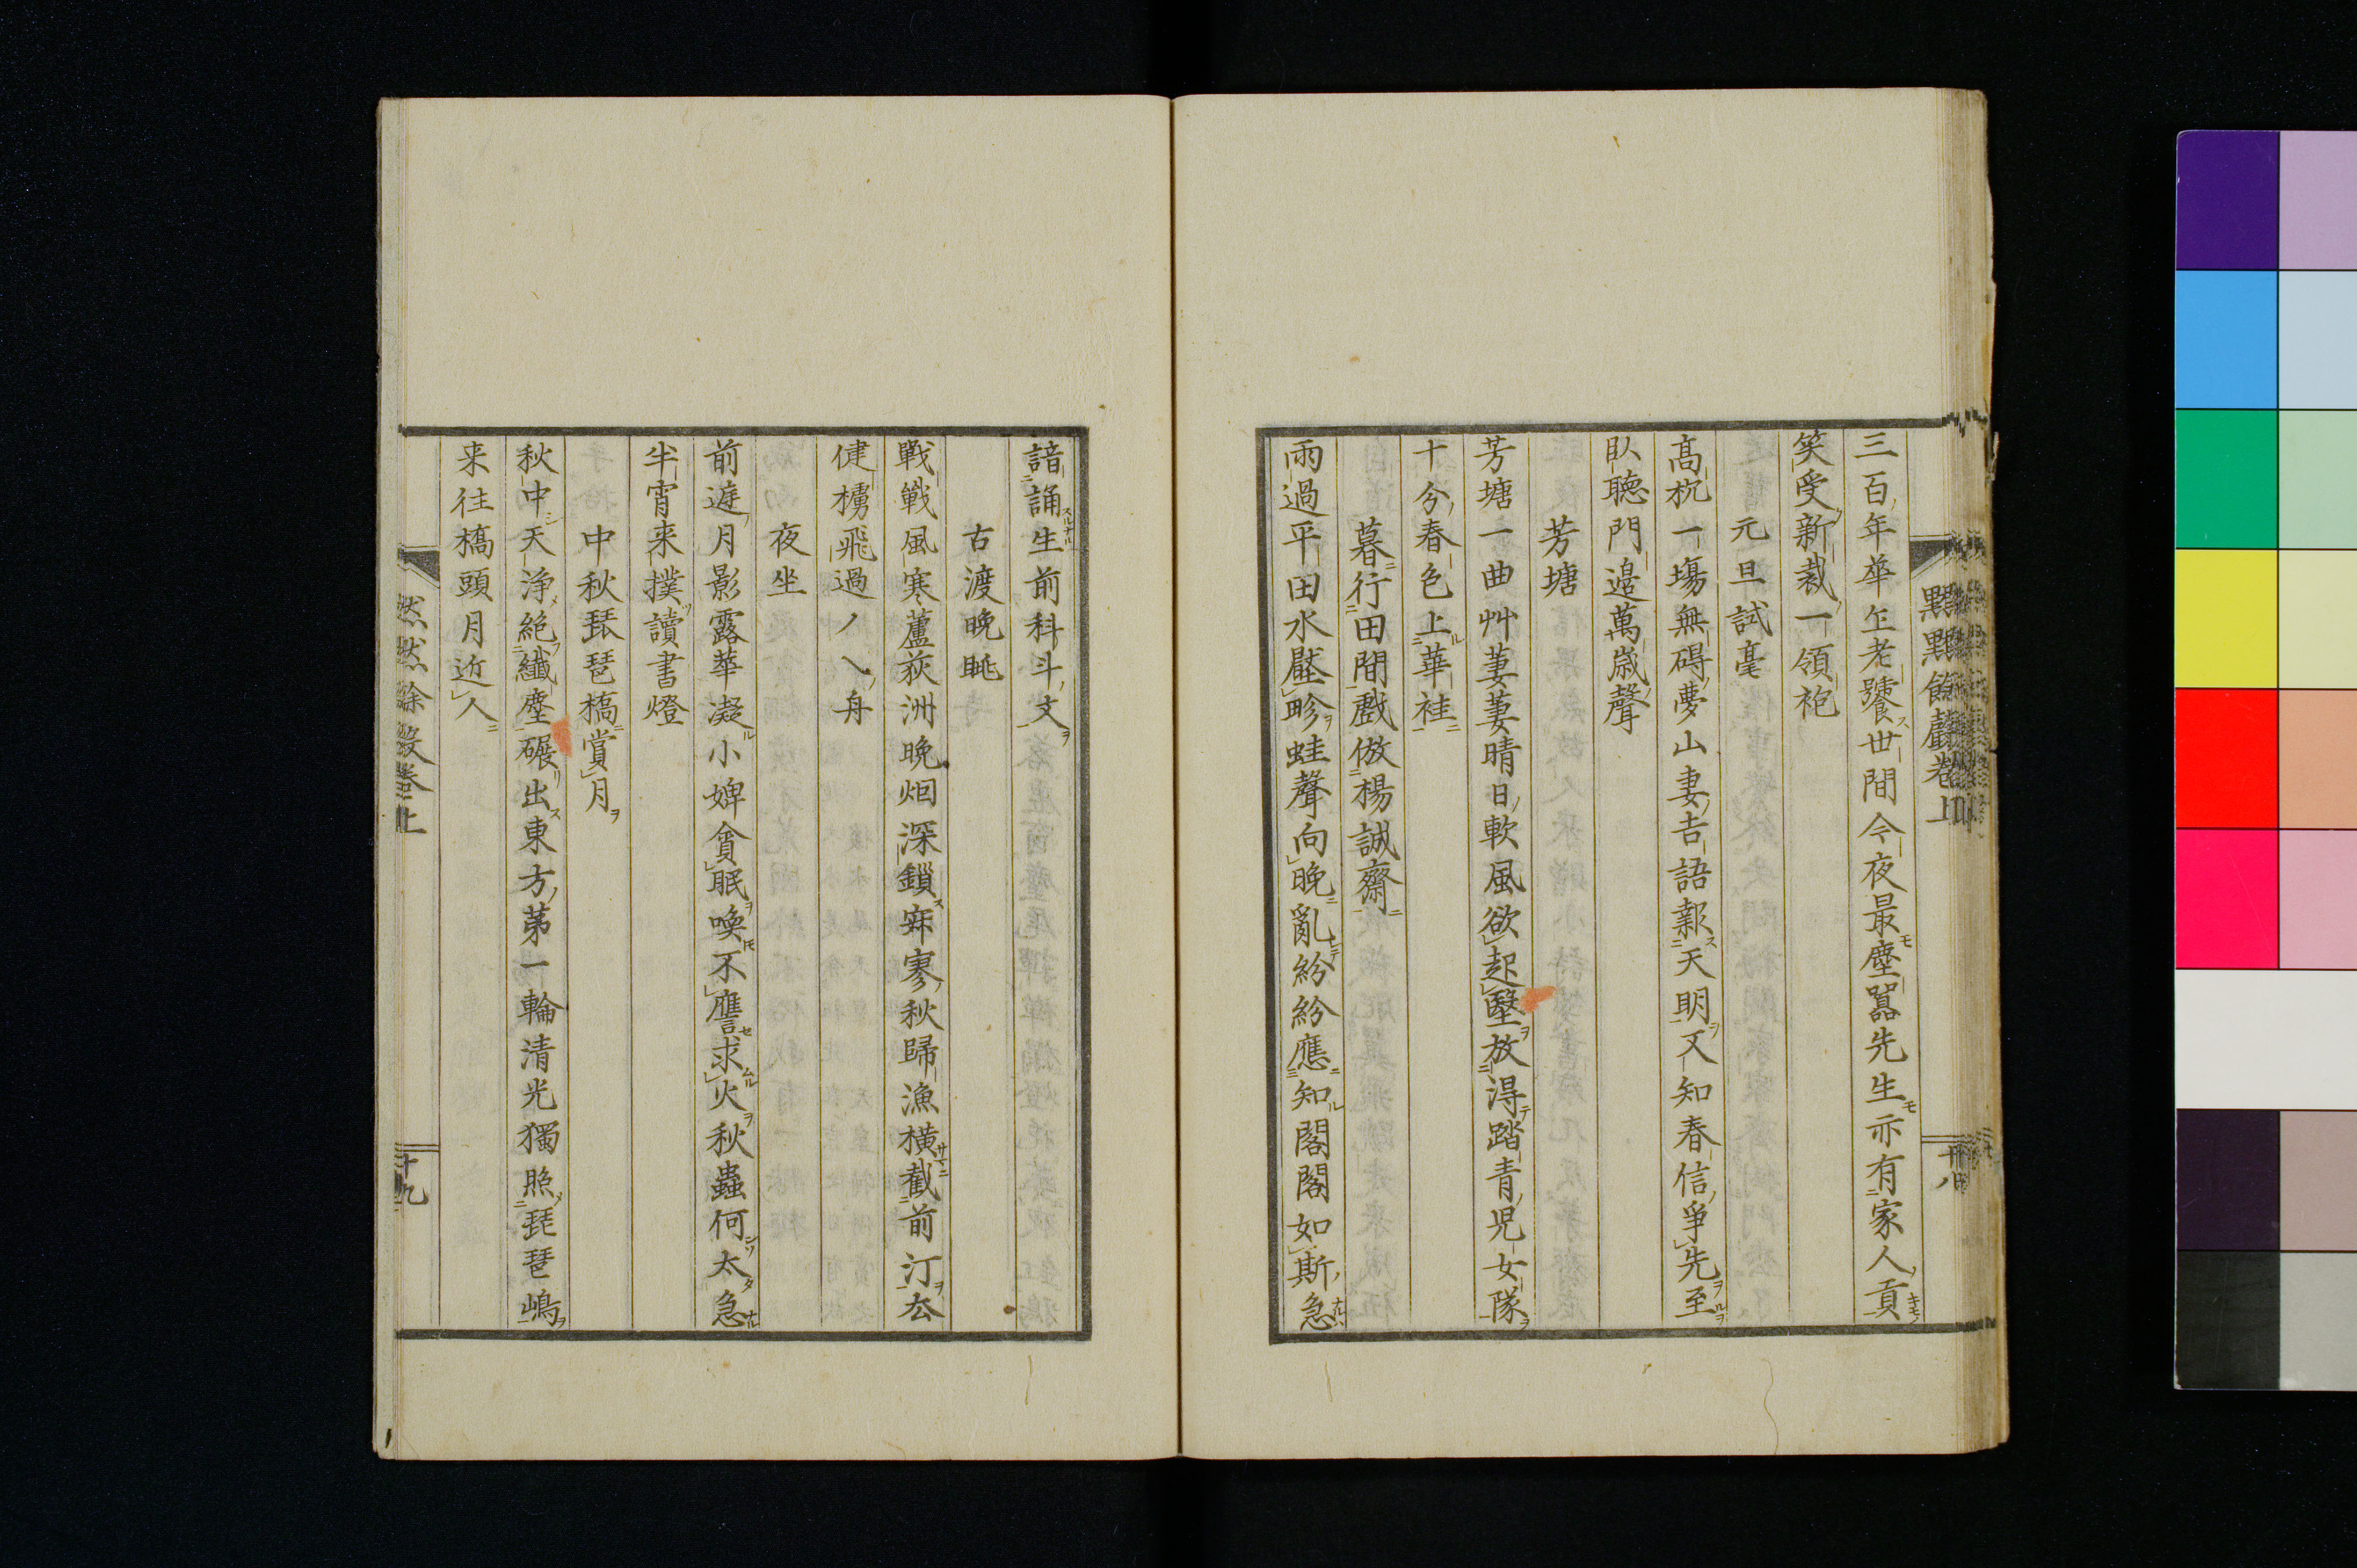 三百年華乍老饕世間今夜最塵囂先生亦有家人貢
笑受新裁一領袍
元旦試毫
高枕一場無碍夢山妻吉語報天明又知春信爭先至
臥聴門邉萬歳聲
芳塘
芳塘一曲艸萋萋晴日軟風欲起翳放得踏青児女隊
十分春色上華袿
暮行田間戲倣楊誠齋
雨過平田水壓畛蛙聲向晩亂紛紛應知閣閣如斯急
諳誦生前科斗文
古渡晩眺
戰戰風寒蘆荻洲晩烟深鎖寂寥秋歸漁横截前汀去
健櫓飛過八舟
夜坐
前遊月影露華凝小婢貪眠喚不譍求火秋蟲何太急
半宵来撲讀書燈
中秋琵琶橋賞月
秋中天浄絶纖塵碾出東方苐一輪清光獨照琵琶嶋
来往橋頭月近人
卷上
十九